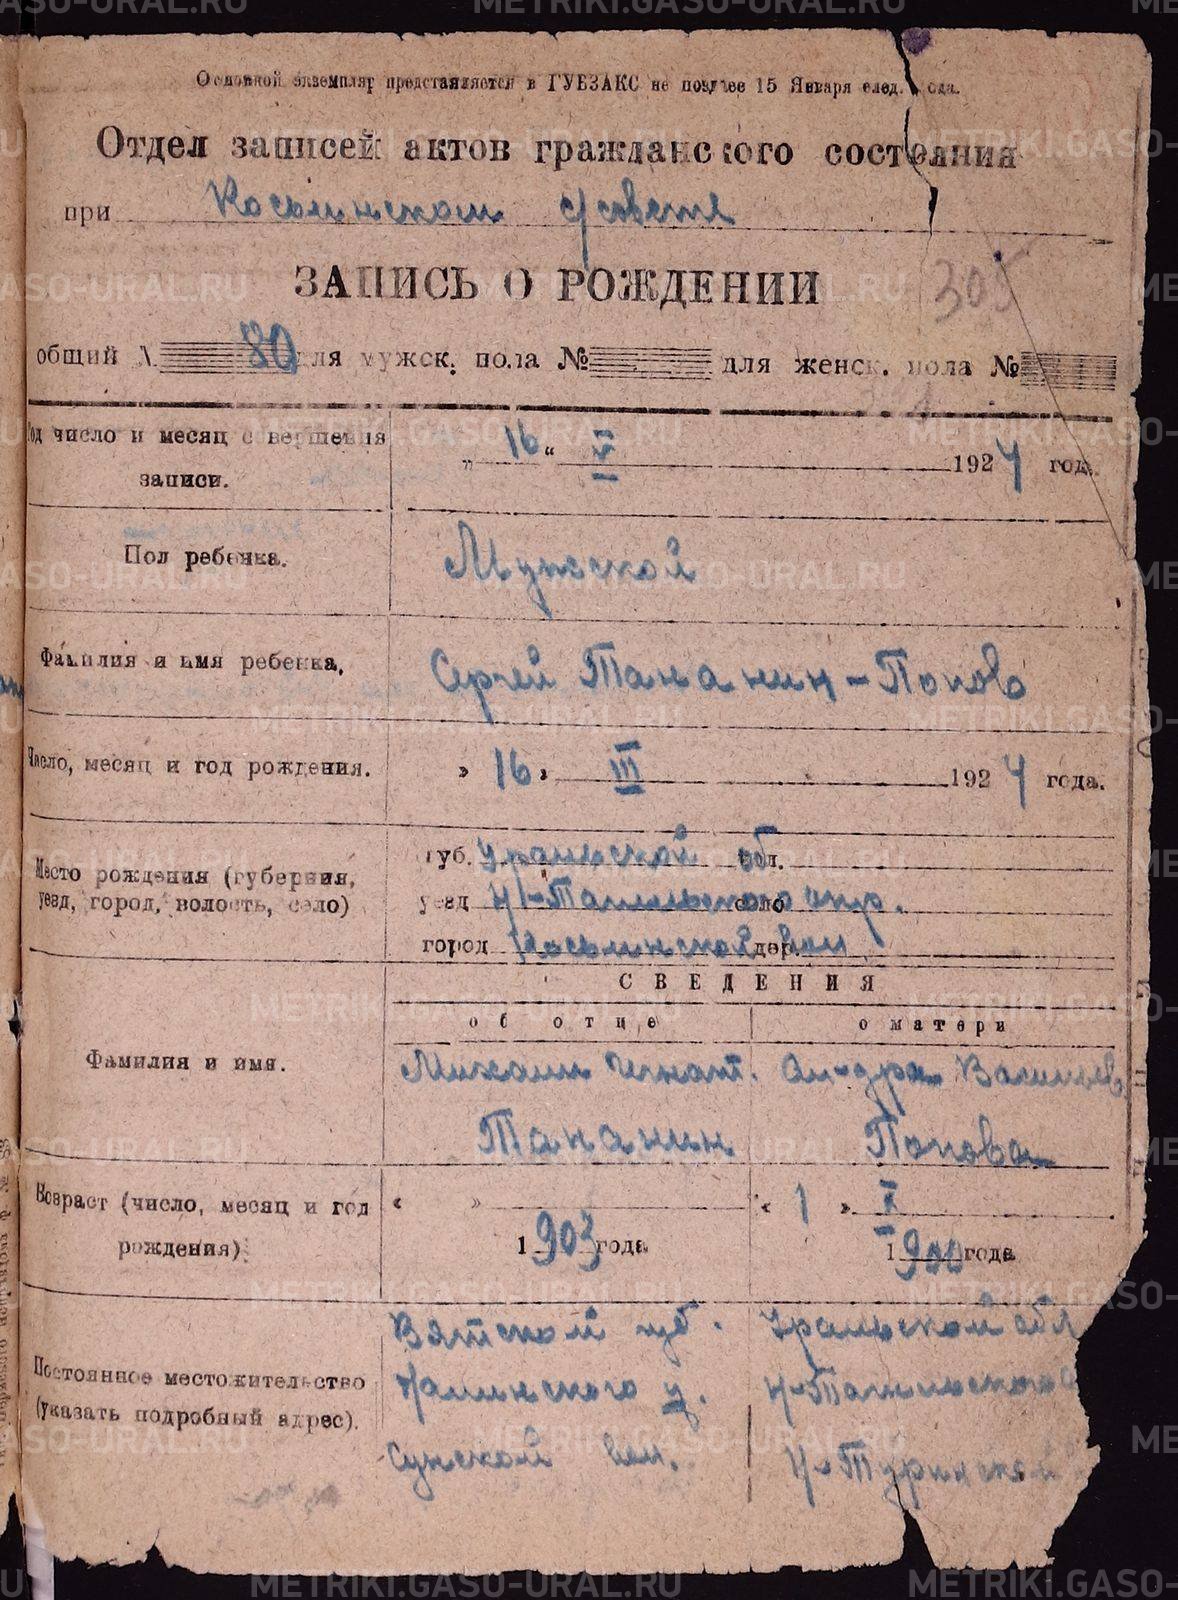 Основной экземпляр представляется в ГУБЗАКС не позднее 15 Января след. года.
Отдел записей актов гражданского состояния
при Косьинском с/совете
ЗАПИСЬ О РОЖДЕНИИ
305
общий № 80 для мужск. пола № для женск. пола №
Год число и месяц совершения записи. „ 16 “ V 1924 год.
Пол ребенка. Мужской
Фамилия и имя ребенка. Сергей Тананин-Попов
Число, месяц и год рождения. „ 16 „ III 1924 года.
Место рождения (губерния, уезд, город, волость, село)
губ. Уральской обл.
уезд Н-Тагильского окр. село
город Косьинской дер. вол.
СВЕДЕНИЯ
об отце о матери
Фамилия и имя.
Михаил Игнат. Ал-дра Васильев.
Тананин Попова
Возраст (число, месяц и год рождения)
« » « 1 » X
1903 года 1900 года
Постоянное местожительство (указать подробный адрес).
Вятской губ. Уральской обл
у. Н-Тагильского
Сунской вол. Н-Туринской
METRIKI.GASO-URAL.RU